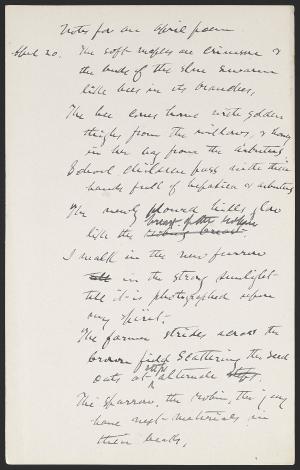 Notes for an April poem
April 20. The soft maples are crimson &
the buds of the elm swarm
like bees in its branches,
The bee comes home with golden
thighs from the willows, & honey
in her bag from the arbutus
School children pass with their
hands full of hepatica & arbutus
The newly plowed hills glow
like the breast of the robin
robins breast.
I walk in the new furrow
till in the strong sunlight
till it is photographed upon
my spirit.
The farmer strides across the
brown field scattering the seed
oats at steps alternate steps.
The sparrow, the robin, the jay
have nest-materials in
their beaks.